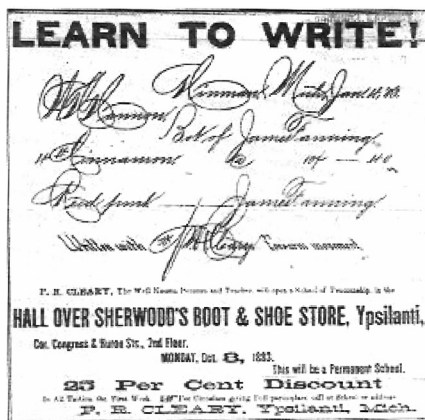 LEARN TO WRITE!
Bot of James Fanning
Cinnamon 10¢ — 40
James Fanning
Written with
P. R. CLEARY, The Well Known Penman and Teacher, will open a School of Penmanship, in the
HALL OVER SHERWOOD'S BOOT & SHOE STORE, Ypsilanti,
Cor. Congress & Huron Sts., 2nd Floor.
MONDAY, Oct. 8, 1883.
This will be a Permanent School.
25 Per Cent Discount
In All Tuition the First Week. For Circulars giving Full particulars call at School or address
P. R. CLEARY, Ypsilanti, Mich.